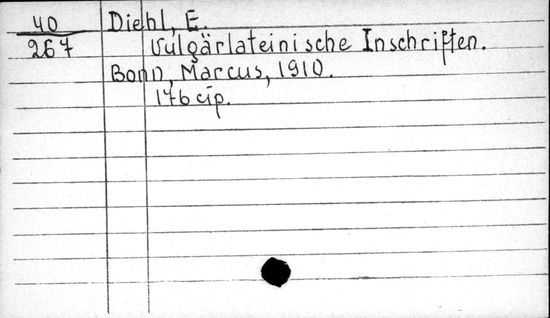 40
267
Diehl, E.
Vulgärlateinische Inschriften.
Bonn, Marcus, 1910.
176 стр.